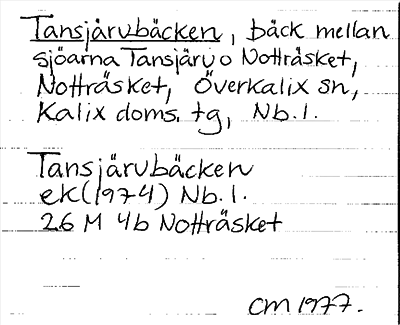 Tansjärvbäcken, bäck mellan
sjöarna Tansjärv o Nottråsket,
Nottråsket, Överkalix sn,
Kalix doms. tg, Nb. l.
Tansjärvbäcken
ek (1974) Nb. l.
26 M 4b Nottråsket
CM 1977.